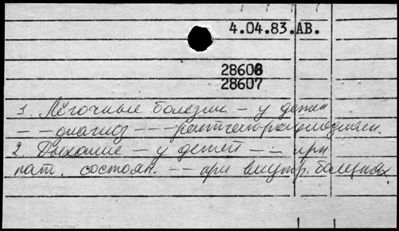 4.04.83.АВ.
28608
28607
1. Лёгочные болезни – у детей
– – диагноз – – – рентгено-
2. Дыхание – у детей – – при
пат. состоян. – – при внутр. болезнях